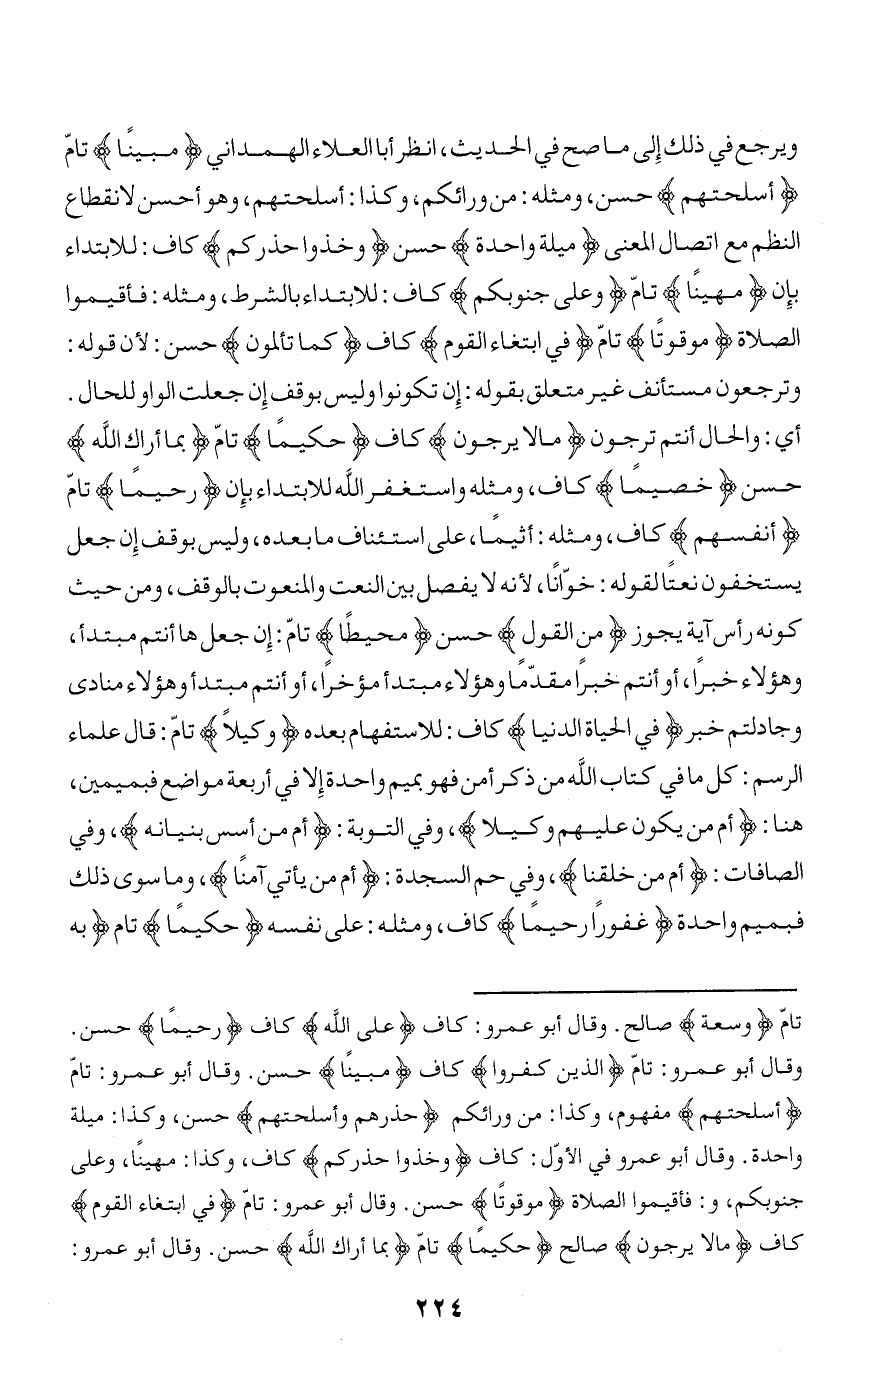 ويرجع في ذلك إلى ما صح في الحديث، انظر أبا العلاء الهمداني ﴿ مبينًا ﴾ تامّ
﴿ أسلحتهم ﴾ حسن، ومثله : من ورائكم، وكذا : أسلحتهم، وهو أحسن لانقطاع
النظم مع اتصال المعنى ﴿ ميلة واحدة ﴾ حسن ﴿ وخذوا حذركم ﴾ كاف : للابتداء
بإن ﴿ مهينًا ﴾ تامّ ﴿ وعلى جنوبكم ﴾ كاف : للابتداء بالشرط، ومثله : فأقيموا
الصلاة ﴿ موقوتًا ﴾ تامّ ﴿ في ابتغاء القوم ﴾ كاف ﴿ كما تألمون ﴾ حسن : لأن قوله :
وترجعون مستأنف غير متعلق بقوله : إن تكونوا وليس بوقف إن جعلت الواو للحال .
أي : والحال أنتم ترجون ﴿ مالا يرجون ﴾ كاف ﴿ حكيمًا ﴾ تامّ ﴿ بما أراك الله ﴾
حسن ﴿ خصيمًا ﴾ كاف، ومثله واستغفر الله للابتداء بإن ﴿ رحيمًا ﴾ تامّ
﴿ أنفسهم ﴾ كاف، ومثله : أثيمًا، على استئناف ما بعده، وليس بوقف إن جعل
يستخفون نعتًا لقوله : خوّانًا، لأنه لا يفصل بين النعت والمنعوت بالوقف، ومن حيث
كونه رأس آية يجوز ﴿ من القول ﴾ حسن ﴿ محيطًا ﴾ تامّ : إن جعل ها أنتم مبتدأ،
وهؤلاء خبرًا، أو أنتم خبرًا مقدّمًا وهؤلاء مبتدأ مؤخرًا، أو أنتم مبتدأ وهؤلاء منادى
وجادلتم خبر ﴿ في الحياة الدنيا ﴾ كاف : للاستفهام بعده ﴿ وكيلاً ﴾ تامّ : قال علماء
الرسم : كل ما في كتاب الله من ذكر أمن فهو بميم واحدة إلا في أربعة مواضع فبميمين،
هنا : ﴿ أم من يكون عليهم وكيلا ﴾، وفي التوبة : ﴿ أم من أسس بنيانه ﴾، وفي
الصافات : ﴿ أم من خلقنا ﴾، وفي حم السجدة : ﴿ أم من يأتي آمنًا ﴾، وما سوى ذلك
فبميم واحدة ﴿ غفورًا رحيمًا ﴾ كاف، ومثله : على نفسه ﴿ حكيمًا ﴾ تام ﴿ به
تامّ ﴿ وسعة ﴾ صالح. وقال أبو عمرو : كاف ﴿ على الله ﴾ كاف ﴿ رحيمًا ﴾ حسن.
وقال أبو عمرو : تامّ ﴿ الذين كفروا ﴾ كاف ﴿ مبينًا ﴾ حسن. وقال أبو عمرو : تامّ
﴿ أسلحتهم ﴾ مفهوم، وكذا : من ورائكم ﴿ حذرهم وأسلحتهم ﴾ حسن، وكذا : ميلة
واحدة. وقال أبو عمرو في الأوّل : كاف ﴿ وخذوا حذركم ﴾ كاف، وكذا : مهينًا، وعلى
جنوبكم، و : فأقيموا الصلاة ﴿ موقوتًا ﴾ حسن. وقال أبو عمرو : تامّ ﴿ في ابتغاء القوم ﴾
كاف ﴿ مالا يرجون ﴾ صالح ﴿ حكيمًا ﴾ تامّ ﴿ بما أراك الله ﴾ حسن. وقال أبو عمرو :
٢٢٤